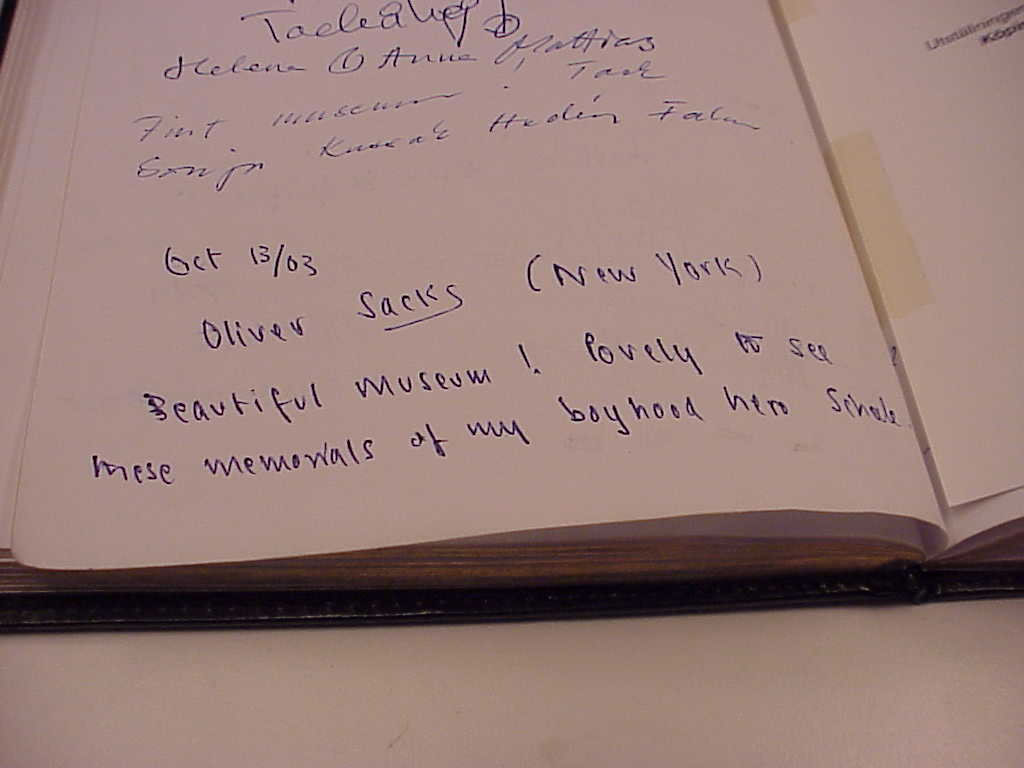 Helena & Anna, Mattias
Fint museum. Tack
Falun
Oct 13/03
Oliver Sacks (New York)
Beautiful museum! Lovely to see
these memorials of my boyhood hero Scheele.
Utställningen